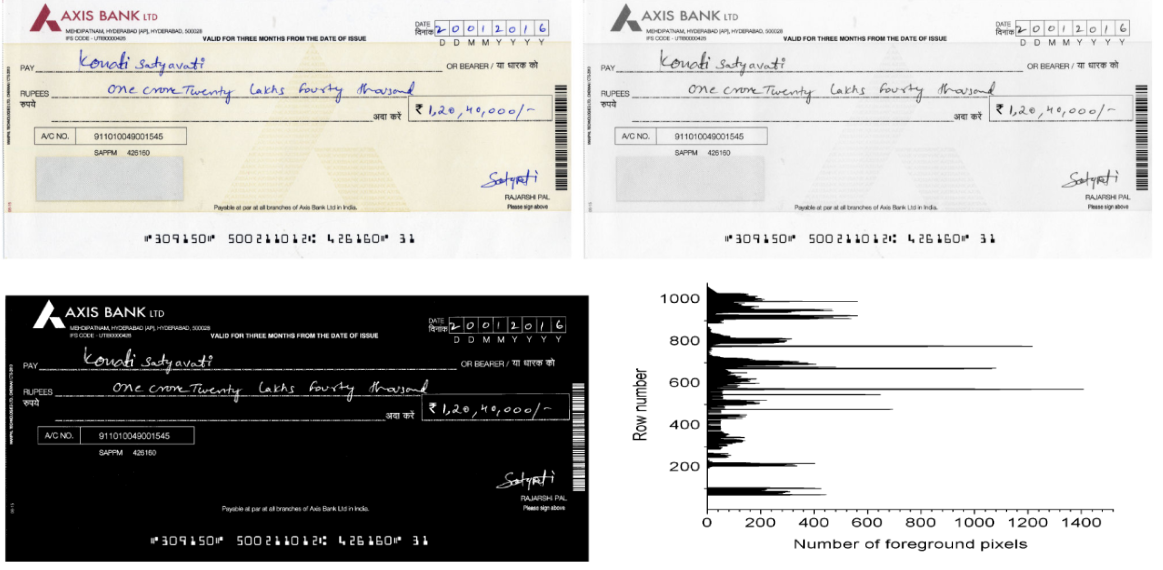 AXIS BANK LTD
MEHDIPATNAM, HYDERABAD [AP], HYDERABAD, 500028
IFS CODE - UTIB0000426
VALID FOR THREE MONTHS FROM THE DATE OF ISSUE
DATE
दिनांक 2 0 0 1 2 0 1 6
D D M M Y Y Y Y
PAY Konati Satyavati OR BEARER / या धारक को
RUPEES One crore Twenty Lakhs fourty thousand
रुपये
अदा करें ₹ 1,20,40,000/-
A/C NO. 911010049001545
SAPPM 426160
RAJARSHI PAL
Please sign above
Payable at par at all branches of Axis Bank Ltd in India.
⑈309150⑈ 500211012⑆ 426160⑈ 31
AXIS BANK LTD
MEHDIPATNAM, HYDERABAD [AP], HYDERABAD, 500028
IFS CODE - UTIB0000426
VALID FOR THREE MONTHS FROM THE DATE OF ISSUE
DATE
दिनांक 2 0 0 1 2 0 1 6
D D M M Y Y Y Y
PAY Konati Satyavati OR BEARER / या धारक को
RUPEES One crore Twenty Lakhs fourty thousand
रुपये
अदा करें ₹ 1,20,40,000/-
A/C NO. 911010049001545
SAPPM 426160
RAJARSHI PAL
Please sign above
Payable at par at all branches of Axis Bank Ltd in India.
⑈309150⑈ 500211012⑆ 426160⑈ 31
AXIS BANK LTD
MEHDIPATNAM, HYDERABAD [AP], HYDERABAD, 500028
IFS CODE - UTIB0000426
VALID FOR THREE MONTHS FROM THE DATE OF ISSUE
DATE
दिनांक 2 0 0 1 2 0 1 6
D D M M Y Y Y Y
PAY Konati Satyavati OR BEARER / या धारक को
RUPEES One crore Twenty Lakhs fourty thousand
रुपये
अदा करें ₹ 1,20,40,000/-
A/C NO. 911010049001545
SAPPM 426160
RAJARSHI PAL
Please sign above
Payable at par at all branches of Axis Bank Ltd in India.
⑈309150⑈ 500211012⑆ 426160⑈ 31
Row number
1000
800
600
400
200
0 200 400 600 800 1000 1200 1400
Number of foreground pixels